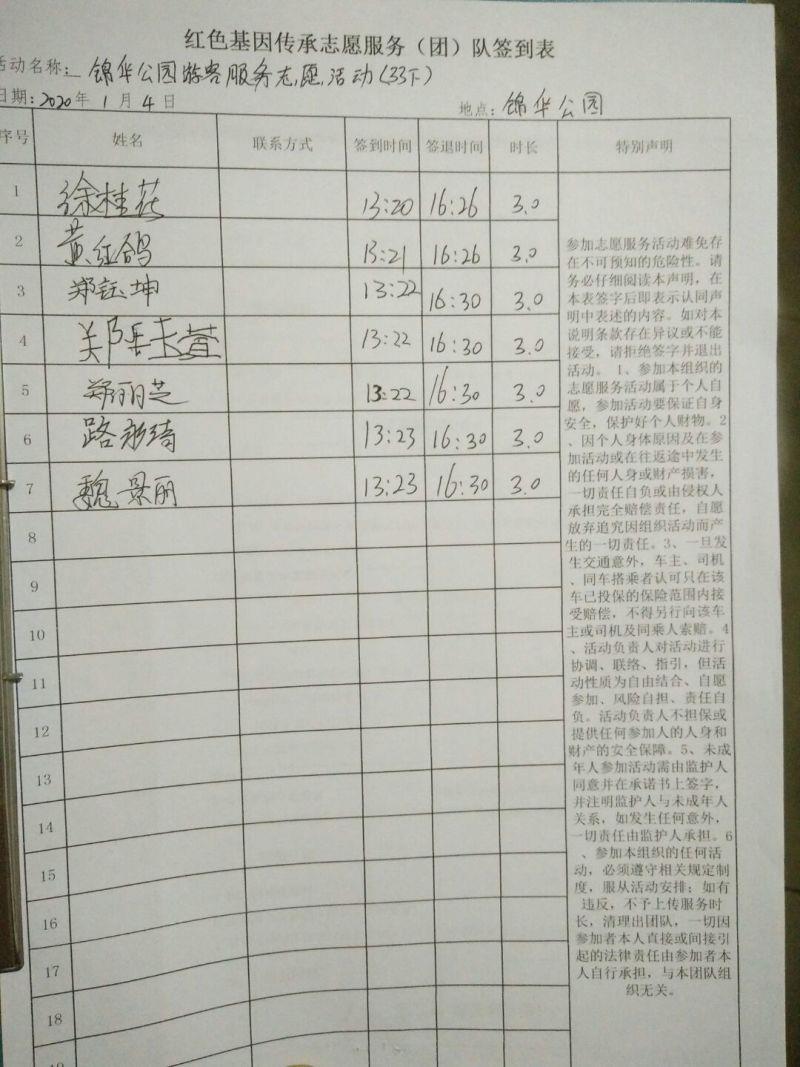 红色基因传承志愿服务（团）队签到表
活动名称：锦华公园游客服务志愿活动(33下)
日期：2020年1月4日 地点：锦华公园
序号 姓名 联系方式 签到时间 签退时间 时长 特别声明
1 徐桂花 13:20 16:26 3.0
2 黄红鸽 13:21 16:26 3.0
3 郑钰坤 13:22 16:30 3.0
4 13:22 16:30 3.0
5 郑丽芝 13:22 16:30 3.0
6 路 琦 13:23 16:30 3.0
7 魏景丽 13:23 16:30 3.0
8
9
10
11
12
13
14
15
16
17
18
参加志愿服务活动难免存
在不可预知的危险性。请
务必仔细阅读本声明，在
本表签字后即表示认同声
明中表述的内容。如对本
说明条款存在异议或不能
接受，请拒绝签字并退出
活动。 1、参加本组织的
志愿服务活动属于个人自
愿，参加活动要保证自身
安全，保护好个人财物。2
、因个人身体原因及在参
加活动或在往返途中发生
的任何人身或财产损害，
一切责任自负或由侵权人
承担完全赔偿责任，自愿
放弃追究因组织活动而产
生的一切责任。3、一旦发
生交通意外，车主、司机
、同车搭乘者认可只在该
车已投保的保险范围内接
受赔偿，不得另行向该车
主或司机及同乘人索赔。4
、活动负责人对活动进行
协调、联络、指引，但活
动性质为自由结合、自愿
参加、风险自担、责任自
负。活动负责人不担保或
提供任何参加人的人身和
财产的安全保障。5、未成
年人参加活动需由监护人
同意并在承诺书上签字，
并注明监护人与未成年人
关系，如发生任何意外，
一切责任由监护人承担。6
、参加本组织的任何活
动，必须遵守相关规定制
度，服从活动安排；如有
违反，不予上传服务时
长，清理出团队，一切因
参加者本人直接或间接引
起的法律责任由参加者本
人自行承担，与本团队组
织无关。